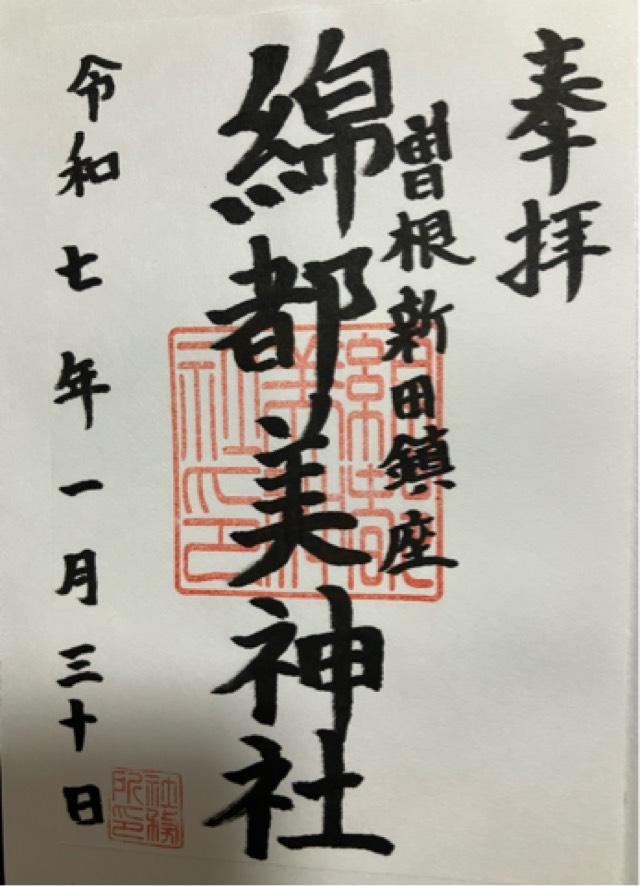 奉拝
曽根新田鎮座
綿都美神社
令和七年一月三十日
社務
所印